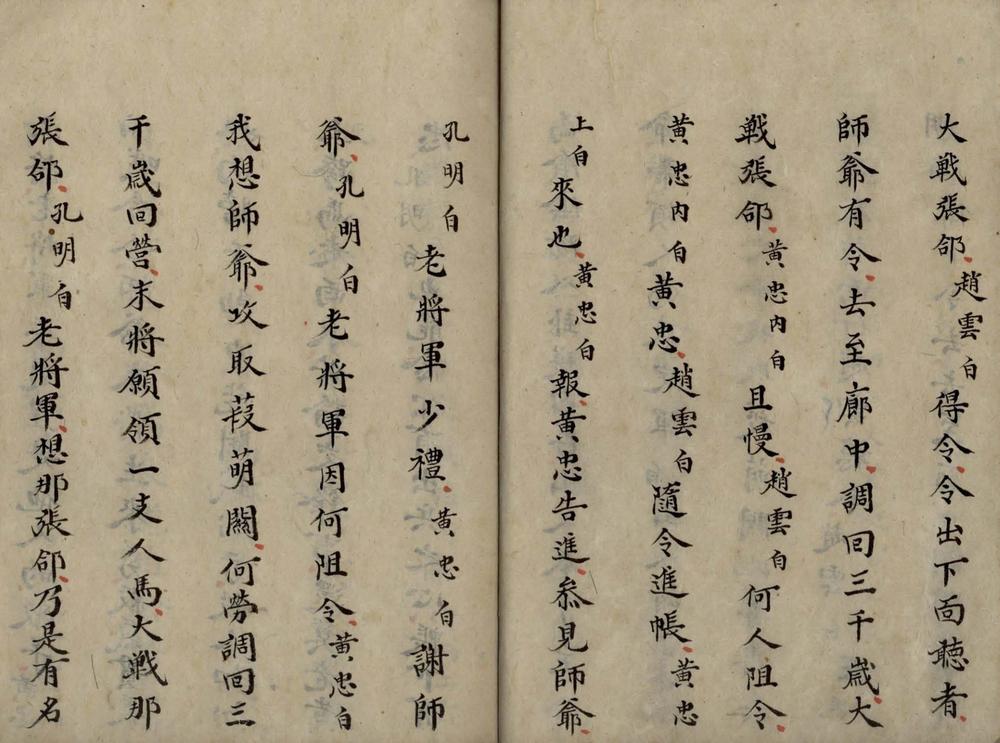 大戰張郃趙雲白得令令出下面聽者
師爺有令去至廊中調回三千歲大
戰張郃黃忠内白且慢趙雲白何人阻令
黃忠内白黃忠趙雲白隨令進帳黃忠
上白來也黃忠白報黃忠告進叅見師爺
孔明白老將軍少禮黃忠白謝師
爺孔明白老將軍因何阻令黃忠白
我想師爺攻取葭萌關何勞調回三
千歲回營末將願領一支人馬大戰那
張郃孔明白老將軍想那張郃乃是有名